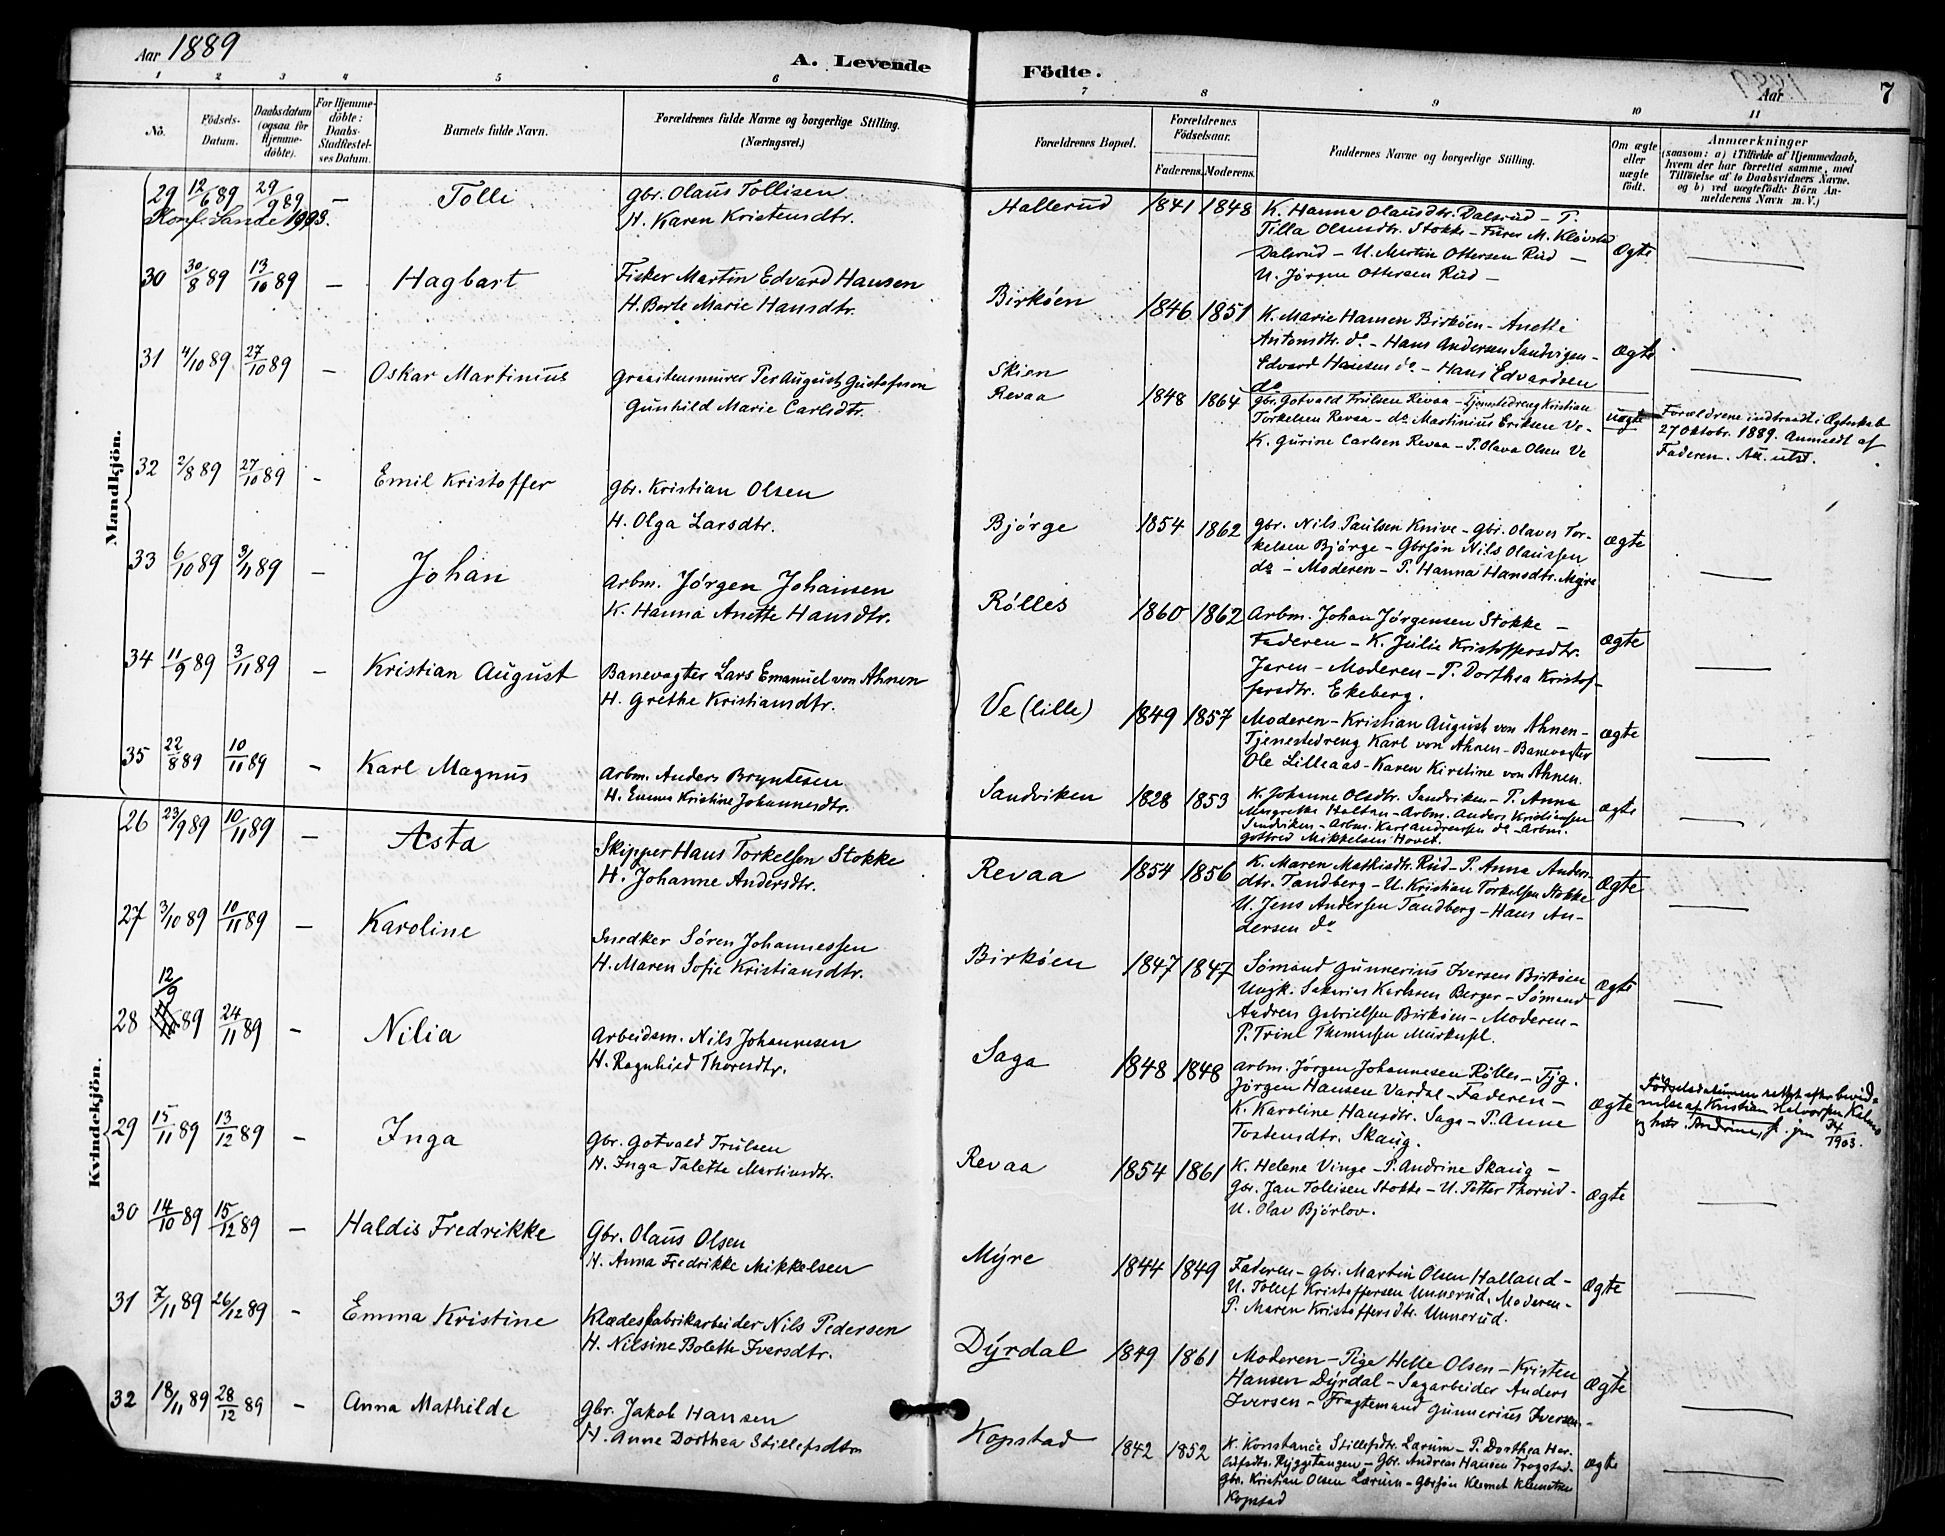 Aar 1889
A. Levende Födte.
Aar
7
1 2 3 4 5 6 7 8 9 10 11
No.
Födsels-Datum.
Daabsdatum (ogsaa for Hjemme-döbte).
For Hjemme-döbte: Daabs-Stadfæstel-ses Datum.
Barnets fulde Navn.
Forældrenes fulde Navne og borgerlige Stilling. (Næringsvei.)
Forældrenes Bopæl.
Forældrenes Födselsaar.
Faderens. Moderens.
Faddernes Navne og borgerlige Stilling.
Om ægte eller uægte födt.
Anmærkninger
(saasom: a) i Tilfælde af Hjemmedaab, hvem der har forrettet samme, med Tilföielse af to Daabsvidners Navne, og b) ved uægtefödte Börn Anmelderens Navn m. V.)
Mandkjön.
29 12/6 89 29/9 89 — Tolli Gbr. Olaus Tollisen
H. Karen Kristensdtr. Hallerud 1841 1848 K. Hanna Olausdtr. Dalsrud – P.
Konf. Sande
Tilla Olsensdtr. Stokke – Furer M. Kløvstad
Dalsrud – U. Martin Ottersen Rud –
U. Jørgen Ottersen Rud – Ægte
30 30/8 89 13/10 89 — Hagbart Fisker Martin Edvard Hansen
H. Berte Marie Hansdtr. Birkøen 1846 1851 K. Marie Hansen Birkøen – Anette
Antonsdtr. do – Hans Andersen Sandvigen –
Edvard Hansen do – Hans Edvardsen
do Ægte
31 4/10 89 27/10 89 — Oskar Martinius Graastensmurer Per August Gustafsson
Gunhild Marie Carlsdtr. Skien
Revaa 1848 1864 Gbr. Gotvald Trulsen Revaa – Tjenestedreng Kristian
Torkelsen Revaa – do Martinius Eriksen Ve –
K. Gurine Carlsen Revaa – P. Olava Olsen Ve uægte Forældrene indtraadt i Ægteskab
27 Oktobr. 1889. Anmeldt af
Faderen. Att. utst.
32 2/8 89 27/10 89 – Emil Kristoffer Gbr. Kristian Olsen
H. Olga Larsdtr. Bjørge 1854 1862 Gbr. Nils Paulsen Knive – Gbr. Olaves Tor-
kelsen Bjørge – Gbrsøn Nils Olaussen
do – Moderen – P. Hanna Hansdtr. Myre Ægte
33 6/10 89 3/11 89 — Johan Arbm. Jørgen Johansen
K. Hanna Anette Hansdtr. Rølles 1860 1862 Arbm. Johan Jørgensen Stokke –
Faderen – K. Julie Kristoffersdtr.
Jaren – Moderen – P. Dorthea Kristof-
fersdtr. Ekeberg. Ægte
34 11/9 89 3/11 89 – Kristian August Banevogter Lars Emanuel von Ahnen
H. Grethe Kristiansdtr. Ve (lille) 1849 1857 Moderen – Kristian August von Ahnen –
Tjenestedreng Karl von Ahnen – Banevogter
Ole Lilleaas – Karen Kirstine von Ahnen. Ægte
35 22/8 89 10/11 89 – Karl Magnus Arbm. Anders Bryntesen
H. Emma Kristine Johannesdtr. Sandviken 1828 1853 K. Johanne Olsdtr. Sandviken – P. Anna
Margrethe Holtan – Arbm. Anders Kristiansen
Sandviken – Arbm. Karl Andreassen do – Arbm.
Gottfred Mikkelsen Hovet. Ægte
Kvindekjön.
26 23/9 89 10/11 89 — Asta Skipper Hans Torkelsen Stokke
H. Johanne Andersdtr. Revaa 1854 1856 K. Maren Mathisdtr. Rud – P. Anna Anders-
dtr. Tandberg – U. Kristian Torkelsen Stokke
U. Jens Andersen Tandberg – Hans An-
dersen do Ægte
27 3/10 89 10/11 89 — Karoline Snedker Søren Johannessen
H. Maren Sofie Kristiansdtr. Birkøen 1847 1847 Sømand Gunnerius Iversen Birkøen
Ungk. Sakarias Karlsen Berger – Sømand
Andreas Gabrielsen Birkøen – Moderen –
P. Trine Thomasen Ægte
28 12/9 89 24/11 89 – Nilia Arbeidsm. Nils Johannesen
H. Ragnhild Thoresdtr. Saga 1848 1848 Arbm. Jørgen Johannesen Rølles – Tjg.
Jørgen Hansen Vardal – Faderen –
K. Karoline Hansdtr. Saga – P. Anne
Tostensdtr. Skaug. Ægte Fødselsdatumen rettet efter bevid-
nelse af Kristian Halvorsen
og hstr. Andrine 1903.
29 15/11 89 13/12 89 – Inga Gbr. Gotvald Trulsen
H. Inga Talette Martinsdtr. Revaa 1854 1861 K. Helene Vinge – P. Andrine Skaug –
Gbr. Jan Tollisen Stokke – U. Petter Thorud –
U. Olav Bjørlov. Ægte
30 14/10 89 15/12 89 — Haldis Fredrikke Gbr. Olaus Olsen
H. Anna Fredrikke Mikkelsen Myre 1844 1849 Faderen – Gbr. Martin Olsen Halland –
U. Tollef Kristoffersen Unnerud. Moderen –
P. Maren Kristoffersdtr. Unnerud. Ægte
31 7/11 89 26/12 89 – Emma Kristine Klædesfabrikarbeider Nils Pedersen
H. Nilsine Bolette Iversdtr. Dyrdal 1849 1861 Moderen – Pige Helle Olsen – Kristen
Hansen Dyrdal – Sagarbeider Anders
Iversen – Fragtemand Gunnerius Iversen – Ægte
32 18/11 89 28/12 89 – Anna Mathilde Gbr. Jakob Hansen
H. Anne Dorthea Stillefsdtr. Kopstad 1842 1852 K. Konstance Stillefsdtr. Lærum – P. Dorthea Her-
lufsdtr. Ryggetangen – Gbr. Andreas Hansen Trogstad –
Gbr. Kristian Olsen Lærum – Gbrsøn Klemet Klemetsen
Kopstad Ægte